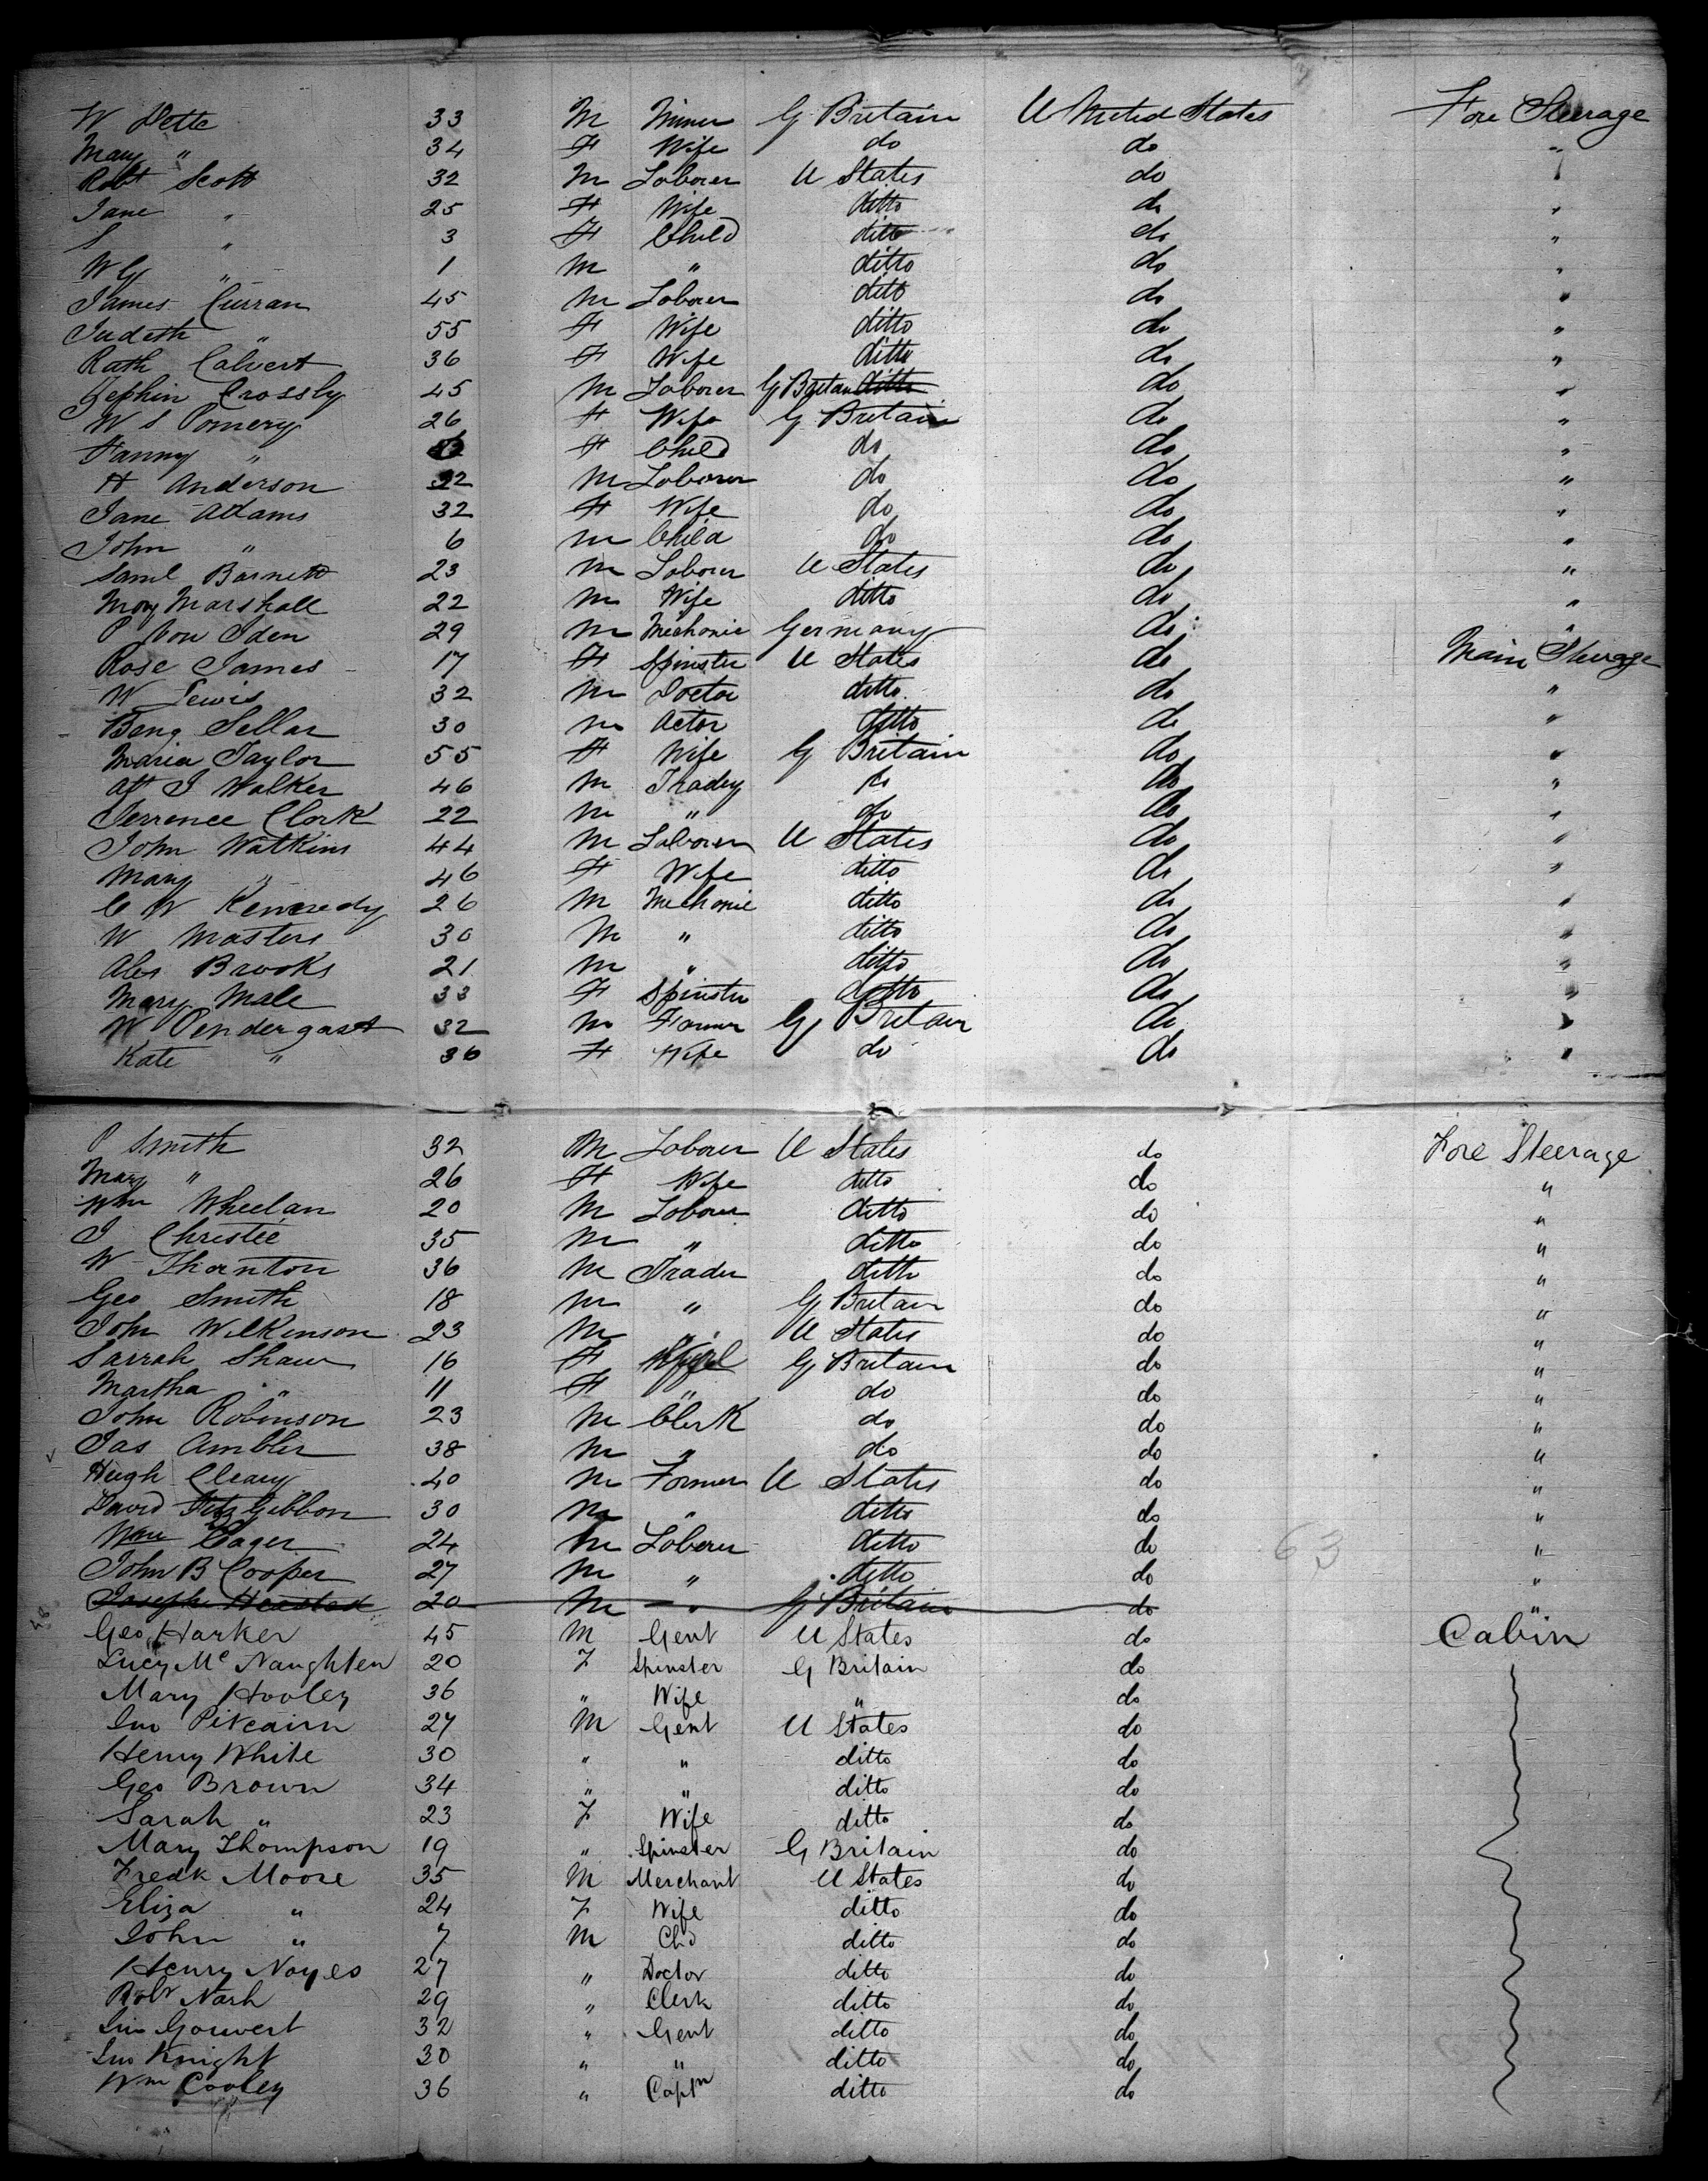 W Pette 33 M Miner G Britain United States Fore Steerage
Mary " 34 F Wife do do "
Robt Scott 32 M Laborer U States do "
Jane " 25 F Wife ditto do "
S " 3 F Child ditto do "
W G " 1 M " ditto do "
James Curran 45 M Laborer ditto do "
Judeth " 55 F Wife ditto do "
Rath Calvert 36 F Wife ditto do "
Jephin Crossly 45 M Laborer G Britain ditto do "
W S Pomery 26 F Wife G Britain do "
Fanny " F Child do do "
H Anderson 22 M Laborer do do "
Jane Adams 32 F Wife do do "
John " 6 M Child do do "
Saml Barnett 23 M Laborer U States do "
Mary Marshall 22 M Wife ditto do "
P Von Iden 29 M Mechanic Germany do "
Rose James 17 F Spinster U States do Main Steerage
W Lewis 32 M Doctor ditto do "
Benj Sellar 30 M Actor ditto do "
Maria Taylor 55 F Wife G Britain do "
J Walker 46 M do do "
Terrence Clark 22 M " do do "
John Watkins 44 M Laborer U States do "
Mary " 46 F Wife ditto do "
C W Kennedy 26 M Mechanic ditto do "
W Masters 30 M " ditto do "
Alex Brooks 21 M " ditto do "
Mary Male 33 F Spinster ditto do "
W Pendergast 32 M Farmer G Britain do "
Kate " 36 F Wife do do "
P Smith 32 M Laborer U States do Fore Steerage
Mary " 26 F Wife ditto do "
Wm Wheelan 20 M Laborer ditto do "
J Christie 35 M " ditto do "
W Thornton 36 M Trader ditto do "
Geo Smith 18 M " G Britain do "
John Wilkinson 23 M " U States do "
Sarrah Shaw 16 F G Britain do "
Martha " 11 F " do do "
John Robinson 23 M Clerk do do "
Jas Ambler 38 M " do do "
Hugh Cleary 40 M Farmer U States do "
David FitzGibbon 30 M " ditto do "
Wm Eager 24 M Laborer ditto do "
John B Cooper 27 M " ditto do "
Joseph 20 M " G Britain do "
Geo Harker 45 M Gent U States do Cabin
Lucy Mc Naughten 20 F Spinster G Britain do
Mary Hooley 36 " Wife " do
Jno Pitcairn 27 M Gent U States do
Henry White 30 " " ditto do
Geo Brown 34 " " ditto do
Sarah " 23 F Wife ditto do
Mary Thompson 19 " Spinster G Britain do
Fredk Moore 35 M Merchant U States do
Eliza " 24 F Wife ditto do
John " 7 M Chd ditto do
Henry Noyes 27 " Doctor ditto do
Robt Nash 29 " Clerk ditto do
Jno Gouvert 32 " Gent ditto do
Jno Knight 30 " " ditto do
Wm Cooley 36 " Captn ditto do
63